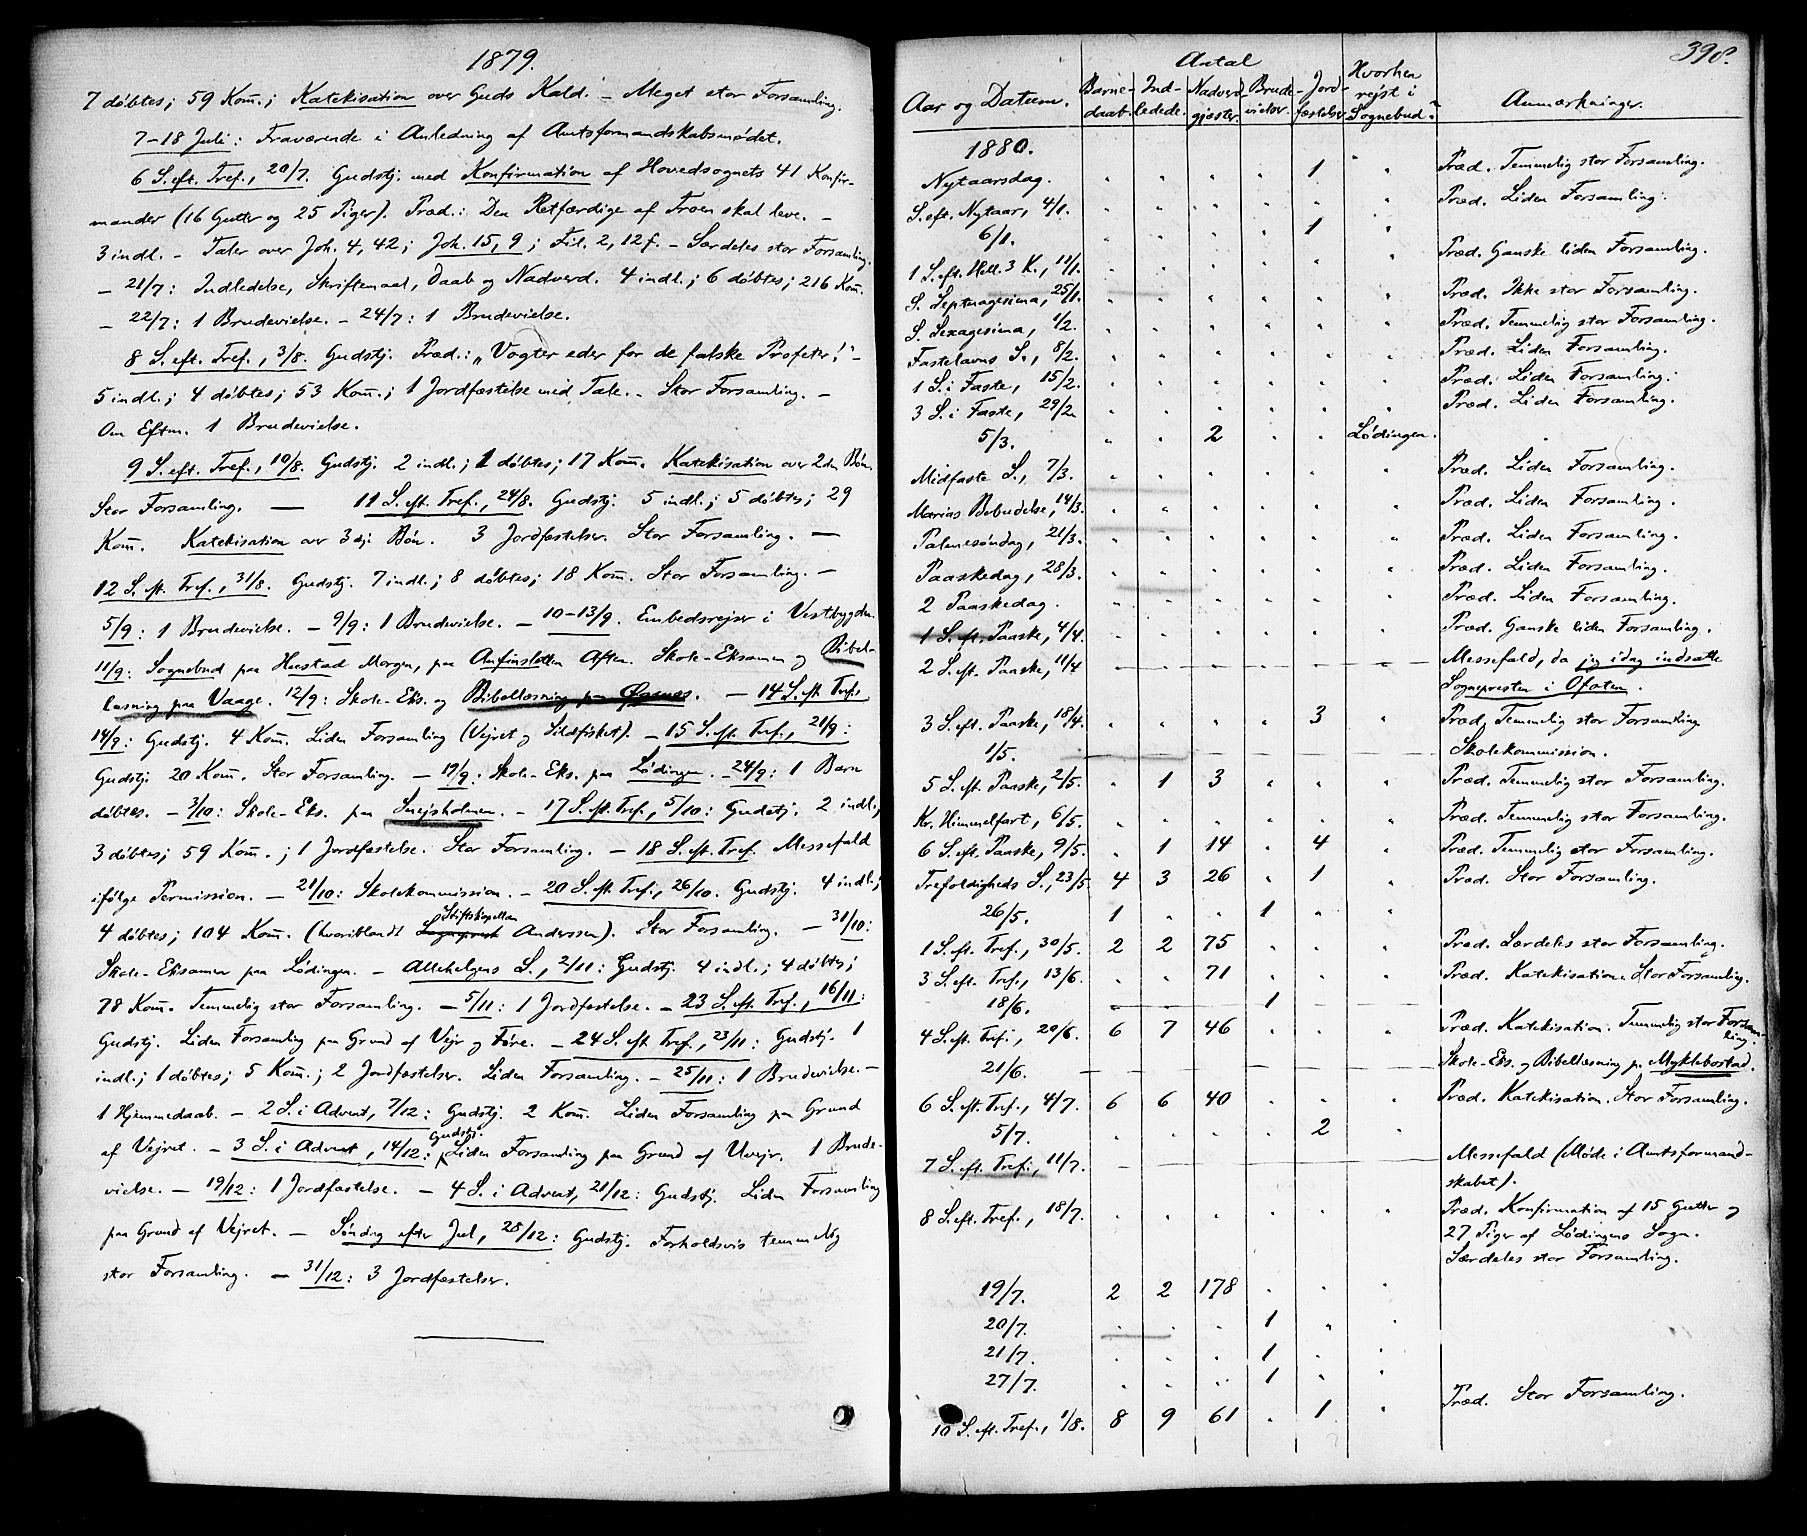 1879.
7 døbtes; 59 Kom̄.; Katekisation over Guds Kald. – Meget stor Forsamling.
7–18 Juli: Fraværende i Anledning af Amtsformandskabsmødet.
6 S. eft. Tref., 20/7. Gudstj. med Konfirmation af Hovedsognets 41 Konfir-
mander (16 Gutter og 25 Piger). Præd.: Den Retfærdige af Troen skal leve. –
3 indl. – Taler over Joh. 4, 42; Joh. 15, 9; Fil. 2, 12 f. – Særdeles stor Forsamling.
– 21/7: Indledelse, Skriftemaal, Daab og Nadverd. 4 indl.; 6 døbtes; 216 Kom̄.
– 22/7: 1 Brudevielse. – 24/7: 1 Brudevielse.
8 S. eft. Tref., 3/8. Gudstj. Præd.: „Vogter eder for de falske Profeter!" –
5 indl.; 4 døbtes; 53 Kom̄.; 1 Jordfæstelse med Tale. – Stor Forsamling. –
Om Eftm. 1 Brudevielse.
9 S. eft. Tref., 10/8. Gudstj. 2 indl.; 1 døbtes; 17 Kom̄. Katekisation over 2den Bøn.
Stor Forsamling. — 11 S. eft. Tref., 24/8. Gudstj. 5 indl.; 5 døbtes; 29
Kom̄. Katekisation over 3dje Bøn. 3 Jordfæstelser. Stor Forsamling. —
12 S. eft. Tref., 31/8. Gudstj. 7 indl.; 8 døbtes; 18 Kom̄. Stor Forsamling. –
5/9: 1 Brudevielse. – 9/9: 1 Brudevielse. – 10–13/9. Embedsrejser i Vestbygden.
11/9: Sognebud paa Morgen, paa Aften. Skole-Eksamen og Bibel-
læsning paa Vaage. 12/9: Skole-Eks. og Bibellæsning paa Øxnes. – 14 S. eft. Tref.,
14/9: Gudstj. 4 Kom̄. Liden Forsamling (Vejret og Sildfisket). – 15 S. eft. Tref., 21/9:
Gudstj. 20 Kom̄. Stor Forsamling. – 19/9: Skole-Eks. paa Lødingen. – 24/9: 1 Barn
døbtes. – 3/10: Skole-Eks. paa – 17 S. eft. Tref., 5/10: Gudstj. 2 indl.;
3 døbtes; 59 Kom̄.; 1 Jordfæstelse. Stor Forsamling. – 18 S. eft. Tref. Messefald
ifølge Permission. – 21/10: Skolekommission. – 20 S. eft. Tref., 26/10. Gudstj. 4 indl.;
4 døbtes; 104 Kom̄. (hvoriblandt Sogneprest Stiftskapellan Anderssen). Stor Forsamling. – 31/10:
Skole-Eksamen paa Lødingen. – Allehelgens S., 2/11: Gudstj. 4 indl.; 4 døbtes;
78 Kom̄. Temmelig stor Forsamling. – 5/11: 1 Jordfæstelse. – 23 S. eft. Tref., 16/11:
Gudstj. Liden Forsamling paa Grund af Vejr og Føre. – 24 S. eft. Tref., 23/11: Gudstj. 1
indl.; 1 døbtes; 5 Kom̄.; 2 Jordfæstelser. Liden Forsamling. – 25/11: 1 Brudevielse. –
1 Hjemmedaab. – 2 S. i Advent, 7/12: Gudstj. 2 Kom̄. Liden Forsamling paa Grund
af Vejret. – 3 S. i Advent, 14/12: Gudstj. Liden Forsamling paa Grund af Uvejr. 1 Brude-
vielse. – 19/12: 1 Jordfæstelse. – 4 S. i Advent, 21/12: Gudstj. Liden Forsamling
paa Grund af Vejret. – Søndag efter Jul, 28/12: Gudstj. Forholdsvis temmelig
stor Forsamling. – 31/12: 3 Jordfæstelser.
398.
Aar og Datum. Antal Barne-daab. Ind-ledede. Nadverd-gjæster. Brude-vielser. Jord-fæstelser. Hvorhen rejst i Sognebud? Anmærkninger.
1880.
Nytaarsdag. " " " " 1 " Præd. Temmelig stor Forsamling.
S. eft. Nytaar, 4/1. " " " " " " Præd. Liden Forsamling.
6/1. " " " " 1 "
1 S. eft. Hell. 3 K., 11/1. " " " " " " Præd. Ganske liden Forsamling.
S. Septuagesima, 25/1. " " " " " " Præd. Ikke stor Forsamling.
S. Sexagesima, 1/2. " " " " " " Præd. Temmelig stor Forsamling.
Fastelavns S., 8/2. " " " " " " Præd. Liden Forsamling.
1 S. i Faste, 15/2. " " " " " " Præd. Liden Forsamling.
3 S. i Faste, 29/2. " " " " " " Præd. Liden Forsamling.
5/3. " " 2 " " Lødingen. "
Midfaste S., 7/3. " " " " " " Præd. Liden Forsamling.
Marias Bebudelse, 14/3. " " " " " " Præd. Liden Forsamling.
Palmesøndag, 21/3. " " " " " " Præd. Liden Forsamling.
Paaskedag, 28/3. " " " " " " Præd. Liden Forsamling.
2 Paaskedag. " " " " " " Præd. Liden Forsamling.
1 S. eft. Paaske, 4/4. " " " " " " Præd. Ganske liden Forsamling.
2 S. eft. Paaske, 11/4 – – – – – – Messefald, da jeg idag indsatte
Sognepresten i Ofoten.
3 S. eft. Paaske, 18/4. " " " " 3 " Præd. Temmelig stor Forsamling
1/5. – – – – – – Skolekommission.
5 S. eft. Paaske, 2/5. " 1 3 " " " Præd. Temmelig stor Forsamling.
Kr. Himmelfart, 6/5. " " " " " " Præd. Temmelig stor Forsamling.
6 S. eft. Paaske, 9/5. " 1 14 " 4 " Præd. Temmelig stor Forsamling.
Trefoldigheds S., 23/5. 4 3 26 " 1 " Præd. Stor Forsamling.
26/5. 1 " " 1 " "
1 S. eft. Tref., 30/5. 2 2 75 " " " Præd. Særdeles stor Forsamling.
3 S. eft. Tref., 13/6. " " 71 " " " Præd. Katekisation. Stor Forsamling.
18/6. – – – 1 – –
4 S. eft. Tref., 20/6. 6 7 46 " " " Præd. Katekisation. Temmelig stor Forsam-ling.
21/6. – – – – – – Skole-Eks. og Bibellæsning paa Myklebostad.
6 S. eft. Tref., 4/7. 6 6 40 " " " Præd. Katekisation. Stor Forsamling.
5/7. " " " " 2 "
7 S. eft. Tref., 11/7. – – – – – – Messefald (Møde i Amtsformand-
skabet).
8 S. eft. Tref., 18/7. " " " " " " Præd. Konfirmation af 15 Gutter og
27 Piger af Lødingens Sogn.
Særdeles stor Forsamling.
19/7. 2 2 178 " " "
20/7. " " " 1 " "
21/7. " " " 1 " "
27/7. " " " 1 " "
10 S. eft. Tref., 1/8. 8 9 61 " 1 " Præd. Stor Forsamling.